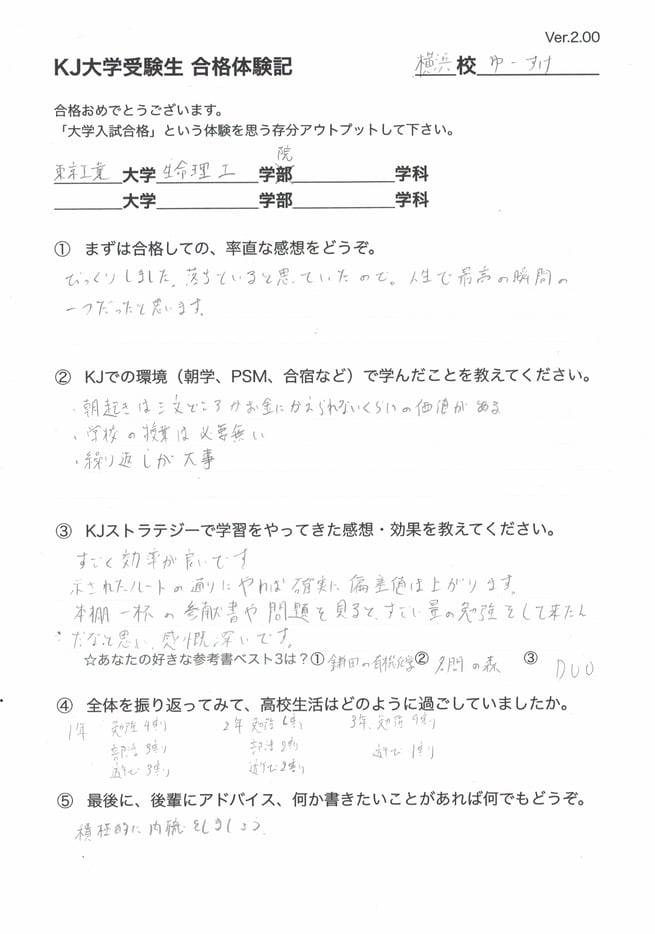 Ver.2.00
KJ大学受験生 合格体験記 横浜校 ゆーすけ
合格おめでとうございます。
「大学入試合格」という体験を思う存分アウトプットして下さい。
院
東京工業大学 生命理工学部 学科
大学 学部 学科
① まずは合格しての、率直な感想をどうぞ。
びっくりしました。落ちていると思っていたので。人生で最高の瞬間の
一つだったと思います。
② KJでの環境（朝学、PSM、合宿など）で学んだことを教えてください。
・朝起きは三文どころかお金にかえられないくらいの価値がある
・学校の授業は必要無い
・繰り返しが大事
③ KJストラテジーで学習をやってきた感想・効果を教えてください。
すごく効率が良いです
示されたルートの通りにやれば確実に偏差値は上がります。
本棚一杯の参献書や問題を見ると、すごい量の勉強をして来たん
だなと思い、感慨深いです。
☆あなたの好きな参考書ベスト3は？① 鎌田の有機化学 ② 名問の森 ③ DUO
④ 全体を振り返ってみて、高校生活はどのように過ごしていましたか。
1年 勉強4割り 2年 勉強6割り 3年、勉強9割り
部活3割り 部活2割り 遊び1割り
遊び3割り 遊び2割り
⑤ 最後に、後輩にアドバイス、何か書きたいことがあれば何でもどうぞ。
積極的に内職をしましょう。